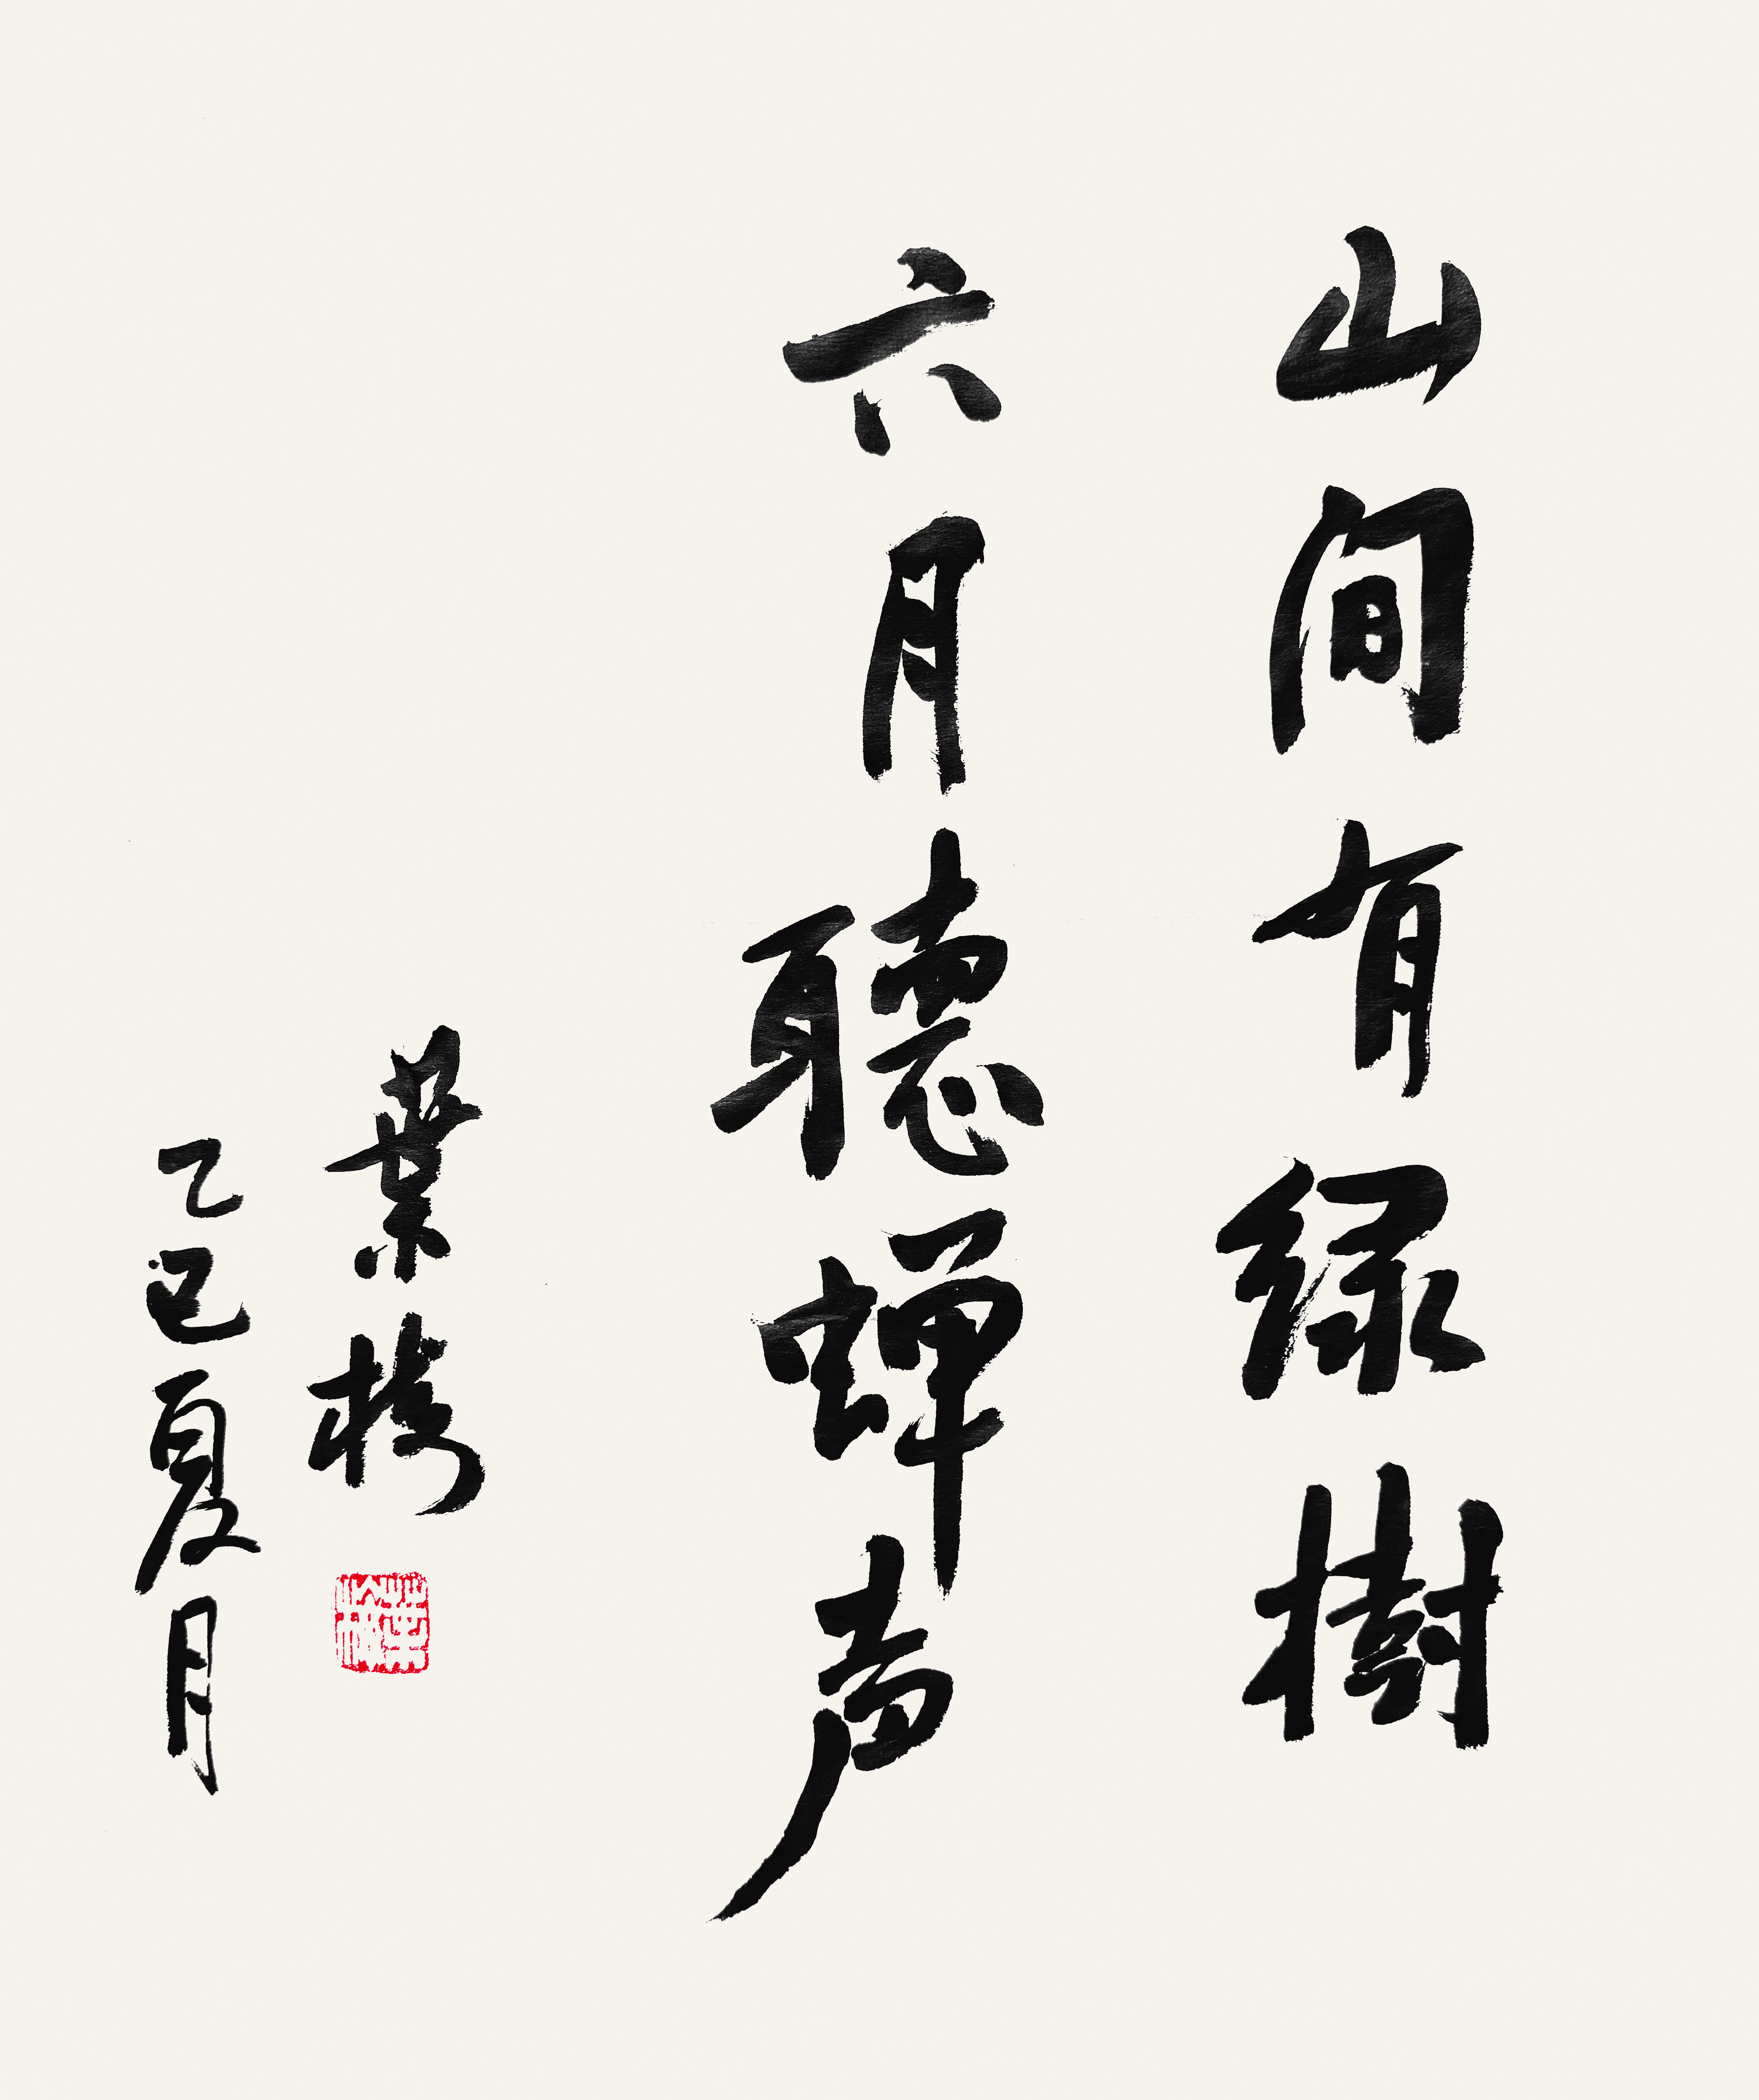 山间有绿樹
六月聽蝉声
葉梅
乙巳夏月